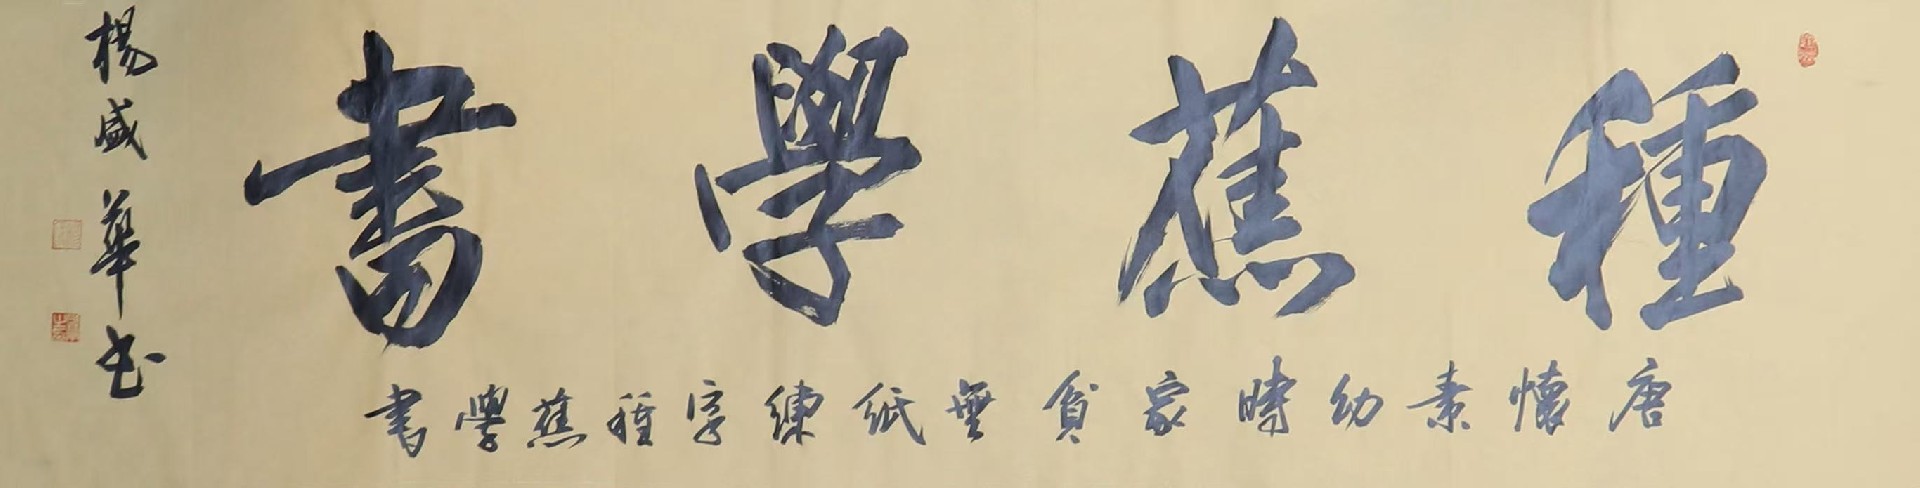 種蕉學書
唐懷素幼時家貧無紙練字種蕉學書
楊盛華书